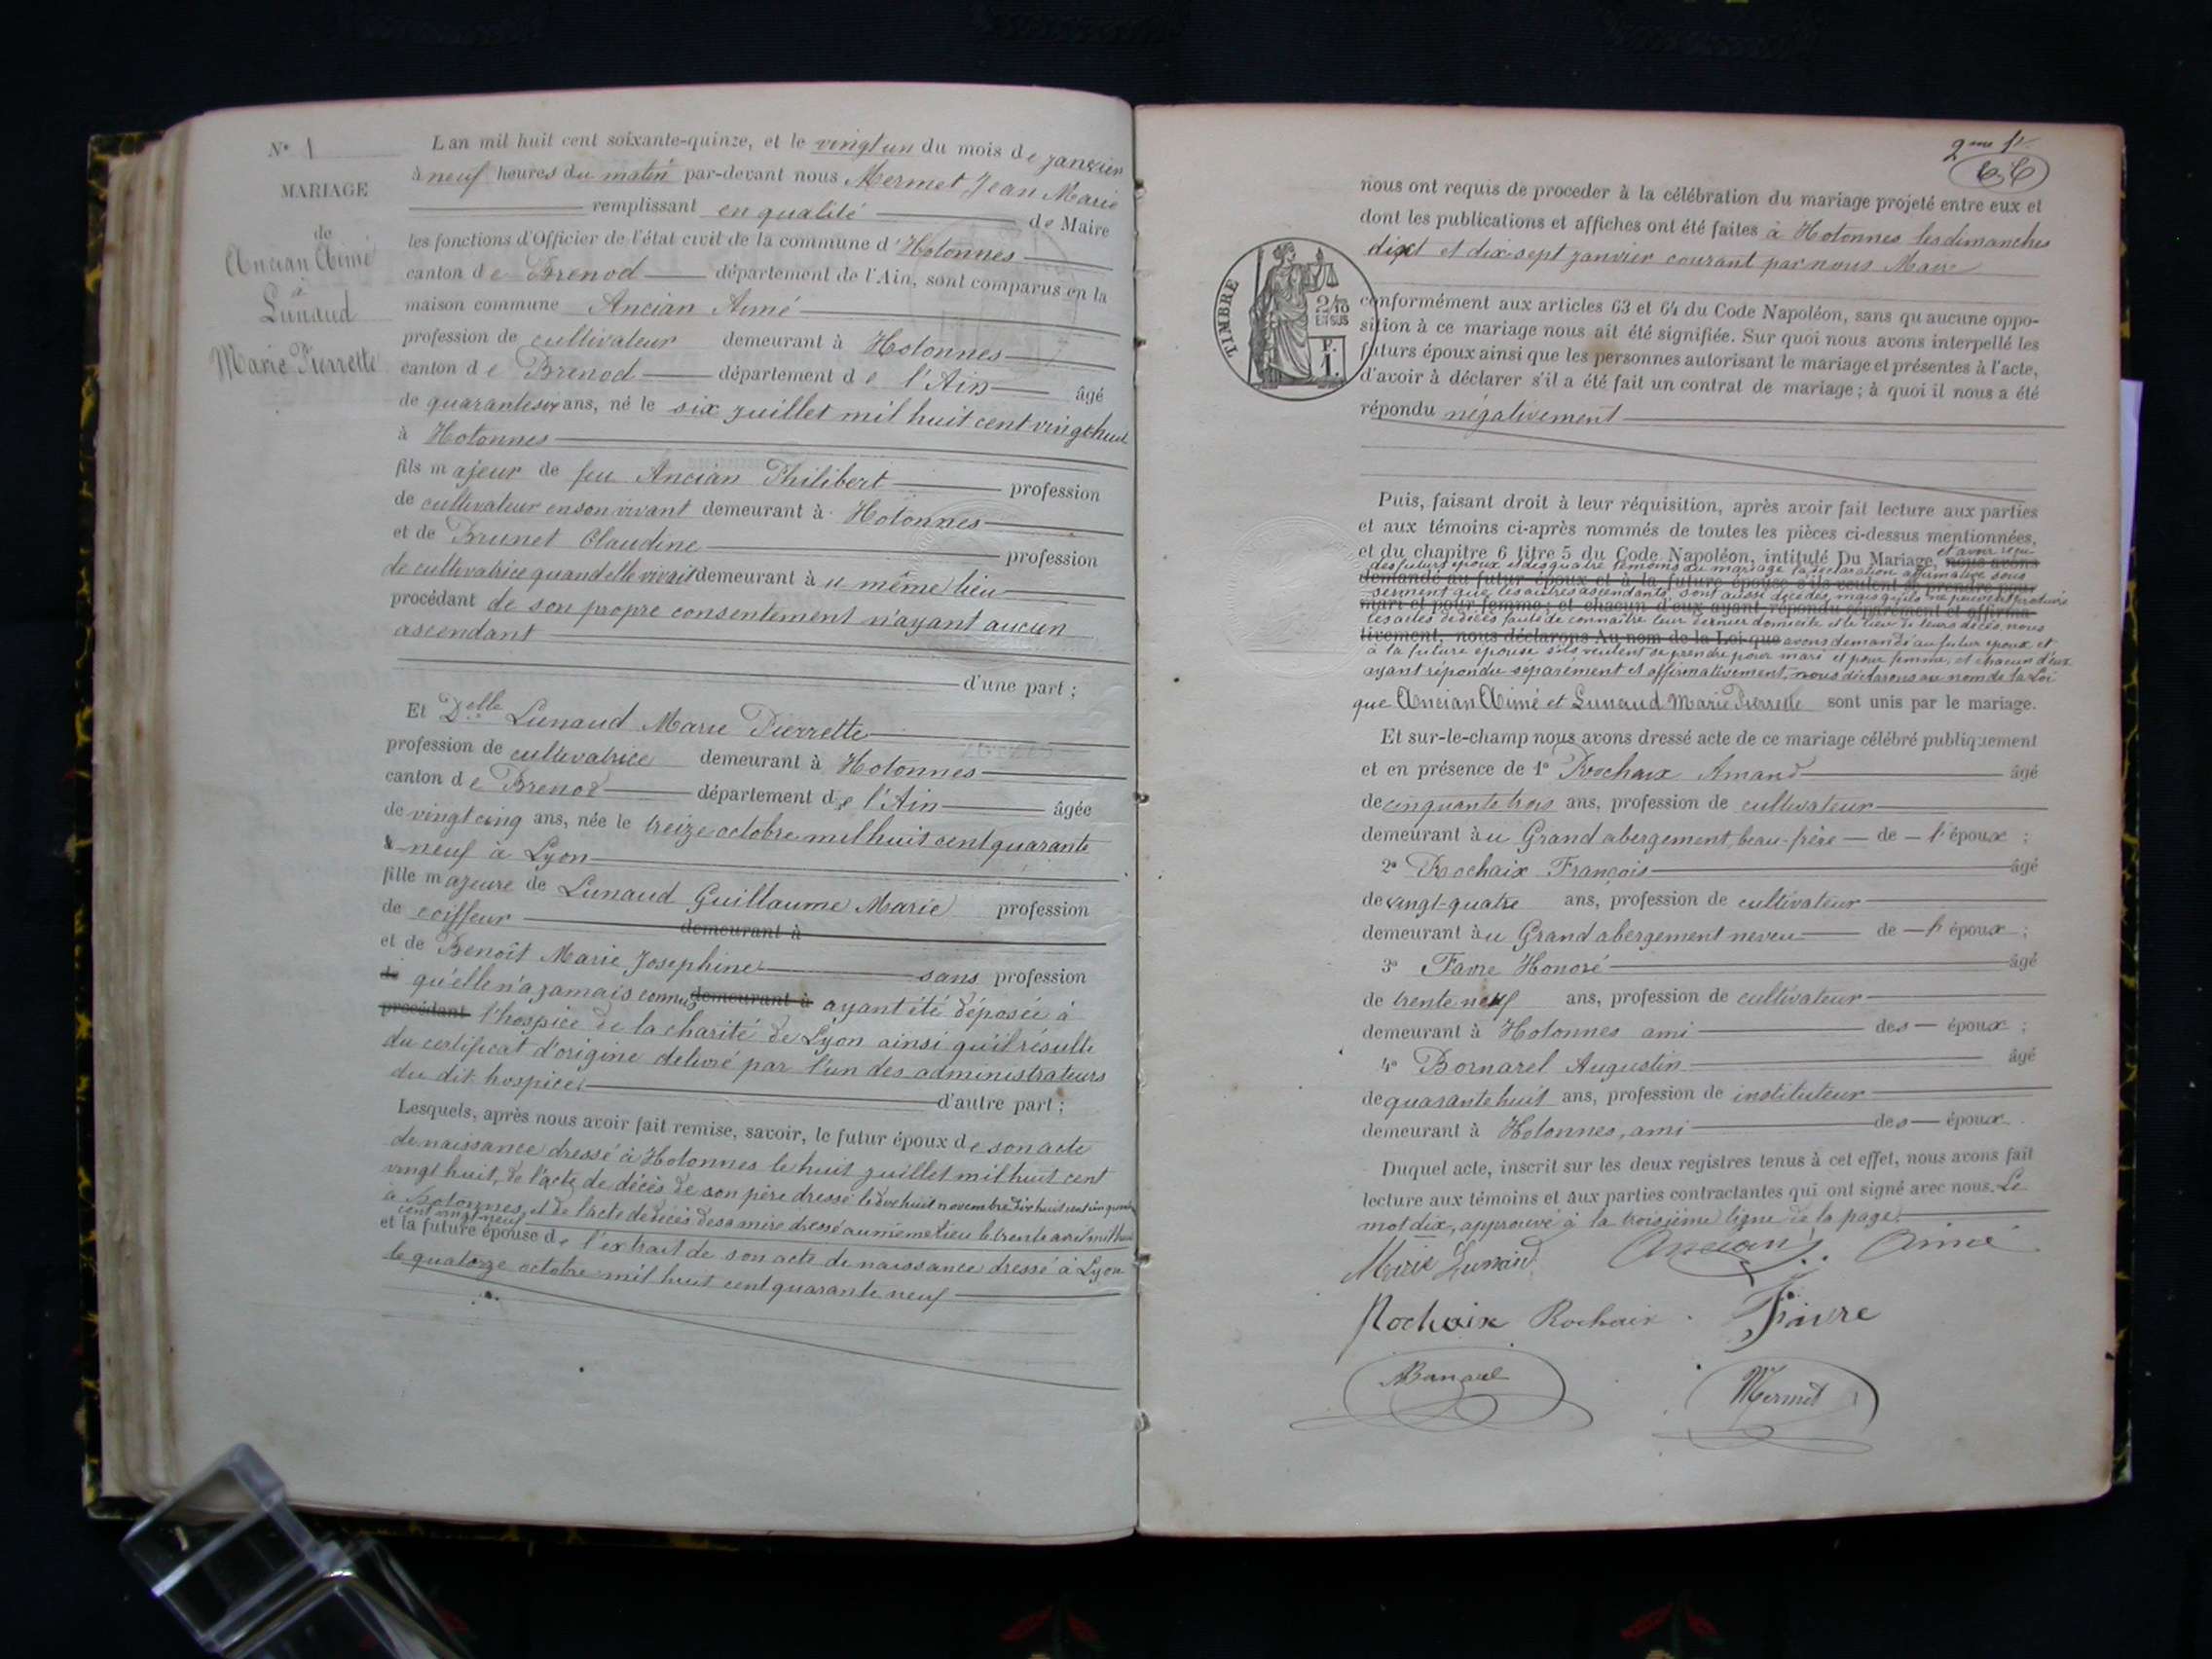 N° 1
MARIAGE
de
Ancian Aimé
à
Lunaud
Marie Pierrette
L an mil huit cent soixante-quinze, et le vingt un du mois de janvier
à neuf heures du matin par-devant nous Mermet Jean Marie
remplissant en qualité de Maire
les fonctions d'Officier de l'état civil de la commune d'Hotonnes
canton de Brenod département de l'Ain, sont comparus en la
maison commune Ancian Aimé
profession de cultivateur demeurant à Hotonnes
canton de Brenod département de l'Ain âgé
de quarante six ans, né le six juillet mil huit cent vingt huit
à Hotonnes
fils majeur de feu Ancian Philibert profession
de cultivateur en son vivant demeurant à Hotonnes
et de Brunet Claudine profession
de cultivatrice quand elle vivait demeurant à u même lieu
procédant de son propre consentement n'ayant aucun
ascendant
d'une part ;
Et Delle Lunaud Marie Pierrette
profession de cultivatrice demeurant à Hotonnes
canton de Brenod département de l'Ain âgée
de vingt cinq ans, née le treize octobre mil huit cent quarante
neuf à Lyon
fille majeure de Lunaud Guillaume Marie profession
de coiffeur demeurant à
et de Benoît Marie Josephine sans profession
de qu'elle n'a jamais connus demeurant à ayant été déposée à
procédant l'hospice de la charité de Lyon ainsi qu'il résulte
du certificat d'origine delivré par l'un des administrateurs
du dit hospice
d'autre part ;
Lesquels, après nous avoir fait remise, savoir, le futur époux de son acte
de naissance dressé à Hotonnes le huit juillet mil huit cent
vingt huit, de l'acte de décès de son père dressé le dix huit novembre dix huit cent
à Hotonnes, et de l'acte de décès de sa mère dressé au même lieu le trente avril mil huit
cent vingt neuf
et la future épouse de l'extrait de son acte de naissance dressé à Lyon
le quatorze octobre mil huit cent quarante neuf
2me 1r
nous ont requis de proceder à la célébration du mariage projeté entre eux et
dont les publications et affiches ont été faites à Hotonnes les dimanches
dix et dix-sept janvier courant par nous Maire
TIMBRE
2/10
EN SUS
P.
1.
conformément aux articles 63 et 64 du Code Napoléon, sans qu aucune oppo-
sition à ce mariage nous ait été signifiée. Sur quoi nous avons interpellé les
futurs époux ainsi que les personnes autorisant le mariage et présentes à l'acte,
d'avoir à déclarer s'il a été fait un contrat de mariage ; à quoi il nous a été
répondu négativement
Puis, faisant droit à leur réquisition, après avoir fait lecture aux parties
et aux témoins ci-après nommés de toutes les pièces ci-dessus mentionnées,
et du chapitre 6 titre 5 du Code Napoléon, intitulé Du Mariage, nous avons
et avoir reçu
des futurs époux et des quatre témoins du mariage la déclaration affirmative sous
demandé au futur époux et à la future épouse s'ils veulent se prendre pour
serment que les autres ascendants sont aussi décédés, mais qu'ils ne peuvent produire
mari et pour femme ; et chacun d'eux ayant répondu séparément et affirma-
les actes de décès faute de connaître leur dernier domicile et le lieu de leurs décès, nous
tivement, nous déclarons Au nom de la Loi que avons demandé au futur époux et
à la future épouse s'ils veulent se prendre pour mari et pour femme, et chacun d'eux
ayant répondu séparément et affirmativement, nous déclarons au nom de la Loi
que Ancian Aimé et Lunaud Marie Pierrette sont unis par le mariage.
Et sur-le-champ nous avons dressé acte de ce mariage célébré publiquement
et en présence de 1° Rochaix Amand âgé
de cinquante trois ans, profession de cultivateur
demeurant à u Grand abergement, beau-frère de l'époux ;
2° Rochaix François âgé
de vingt-quatre ans, profession de cultivateur
demeurant à u Grand abergement neveu de l'époux ;
3° Favre Honoré âgé
de trente neuf ans, profession de cultivateur
demeurant à Hotonnes ami des époux ;
4° Bornarel Augustin âgé
de quarante huit ans, profession de instituteur
demeurant à Hotonnes, ami des époux.
Duquel acte, inscrit sur les deux registres tenus à cet effet, nous avons fait
lecture aux témoins et aux parties contractantes qui ont signé avec nous. Le
mot dix, approuvé à la troisième ligne de la page.
Marie Lunaud Ancian Aimé
Rochaix Rochaix Favre
Mermet